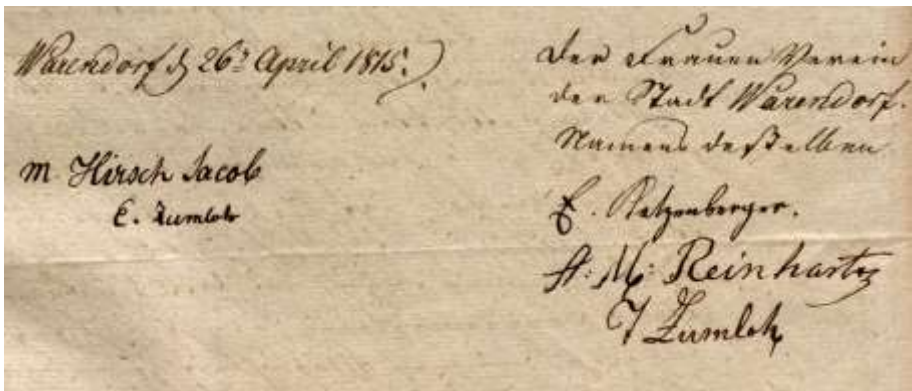 Warendorf d 26t April 1815.
m Hirsch Jacob
E. Zumloh
Der Frauen Verein
der Stadt Warendorf.
Namens deßelben
E. Katzenberger.
A: M: Reinhartz
F Zumloh